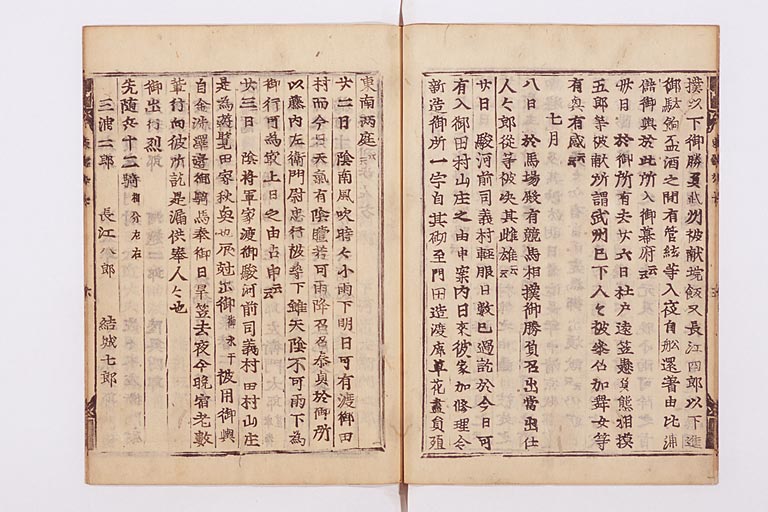 撲以下御勝負武州被献境飯又長江四郎以下進
御駄餉盃酒之間有管絃等入夜自船還著由比浦
儲御輿於此所入御幕府云云
卅日 於御所有去廿六日杜戸遠笠懸負態相撲
五郎等被献所謂武州已下人々被参仕加舞女等
有興有感云云
七月
八日 於馬場殿有競馬相撲御勝負召出當出仕
人々郎從等被决其雌雄云云
廿日 駿河前司義村軽服日數已過訖於今日可
有入御田村山庄之由申案内日來彼家加修理令
新造御所一宇自其砌至門田造渡廊草花盡員殖
東南兩庭云云
廿二日 陰南風吹時々小雨下明日可有渡御田
村而今日天氣有陰曀若可雨降召召泰貞於御所
以藤内左衛門尉忠行被尋下雖天陰不可雨下為
御行可為最上日之由占申云云
廿三日 陰將軍家渡御駿河前司義村田村山庄
是為遊覽田家秋興也辰尅出御 御水干 被用御輿
自金洗澤邊御騎馬奉御日旱笠去夜今晩宿老數
輩行向彼所訖是漏供奉人々也
御出行列
先随兵十二騎 相分左右
三浦二郎 長江八郎 結城七郎